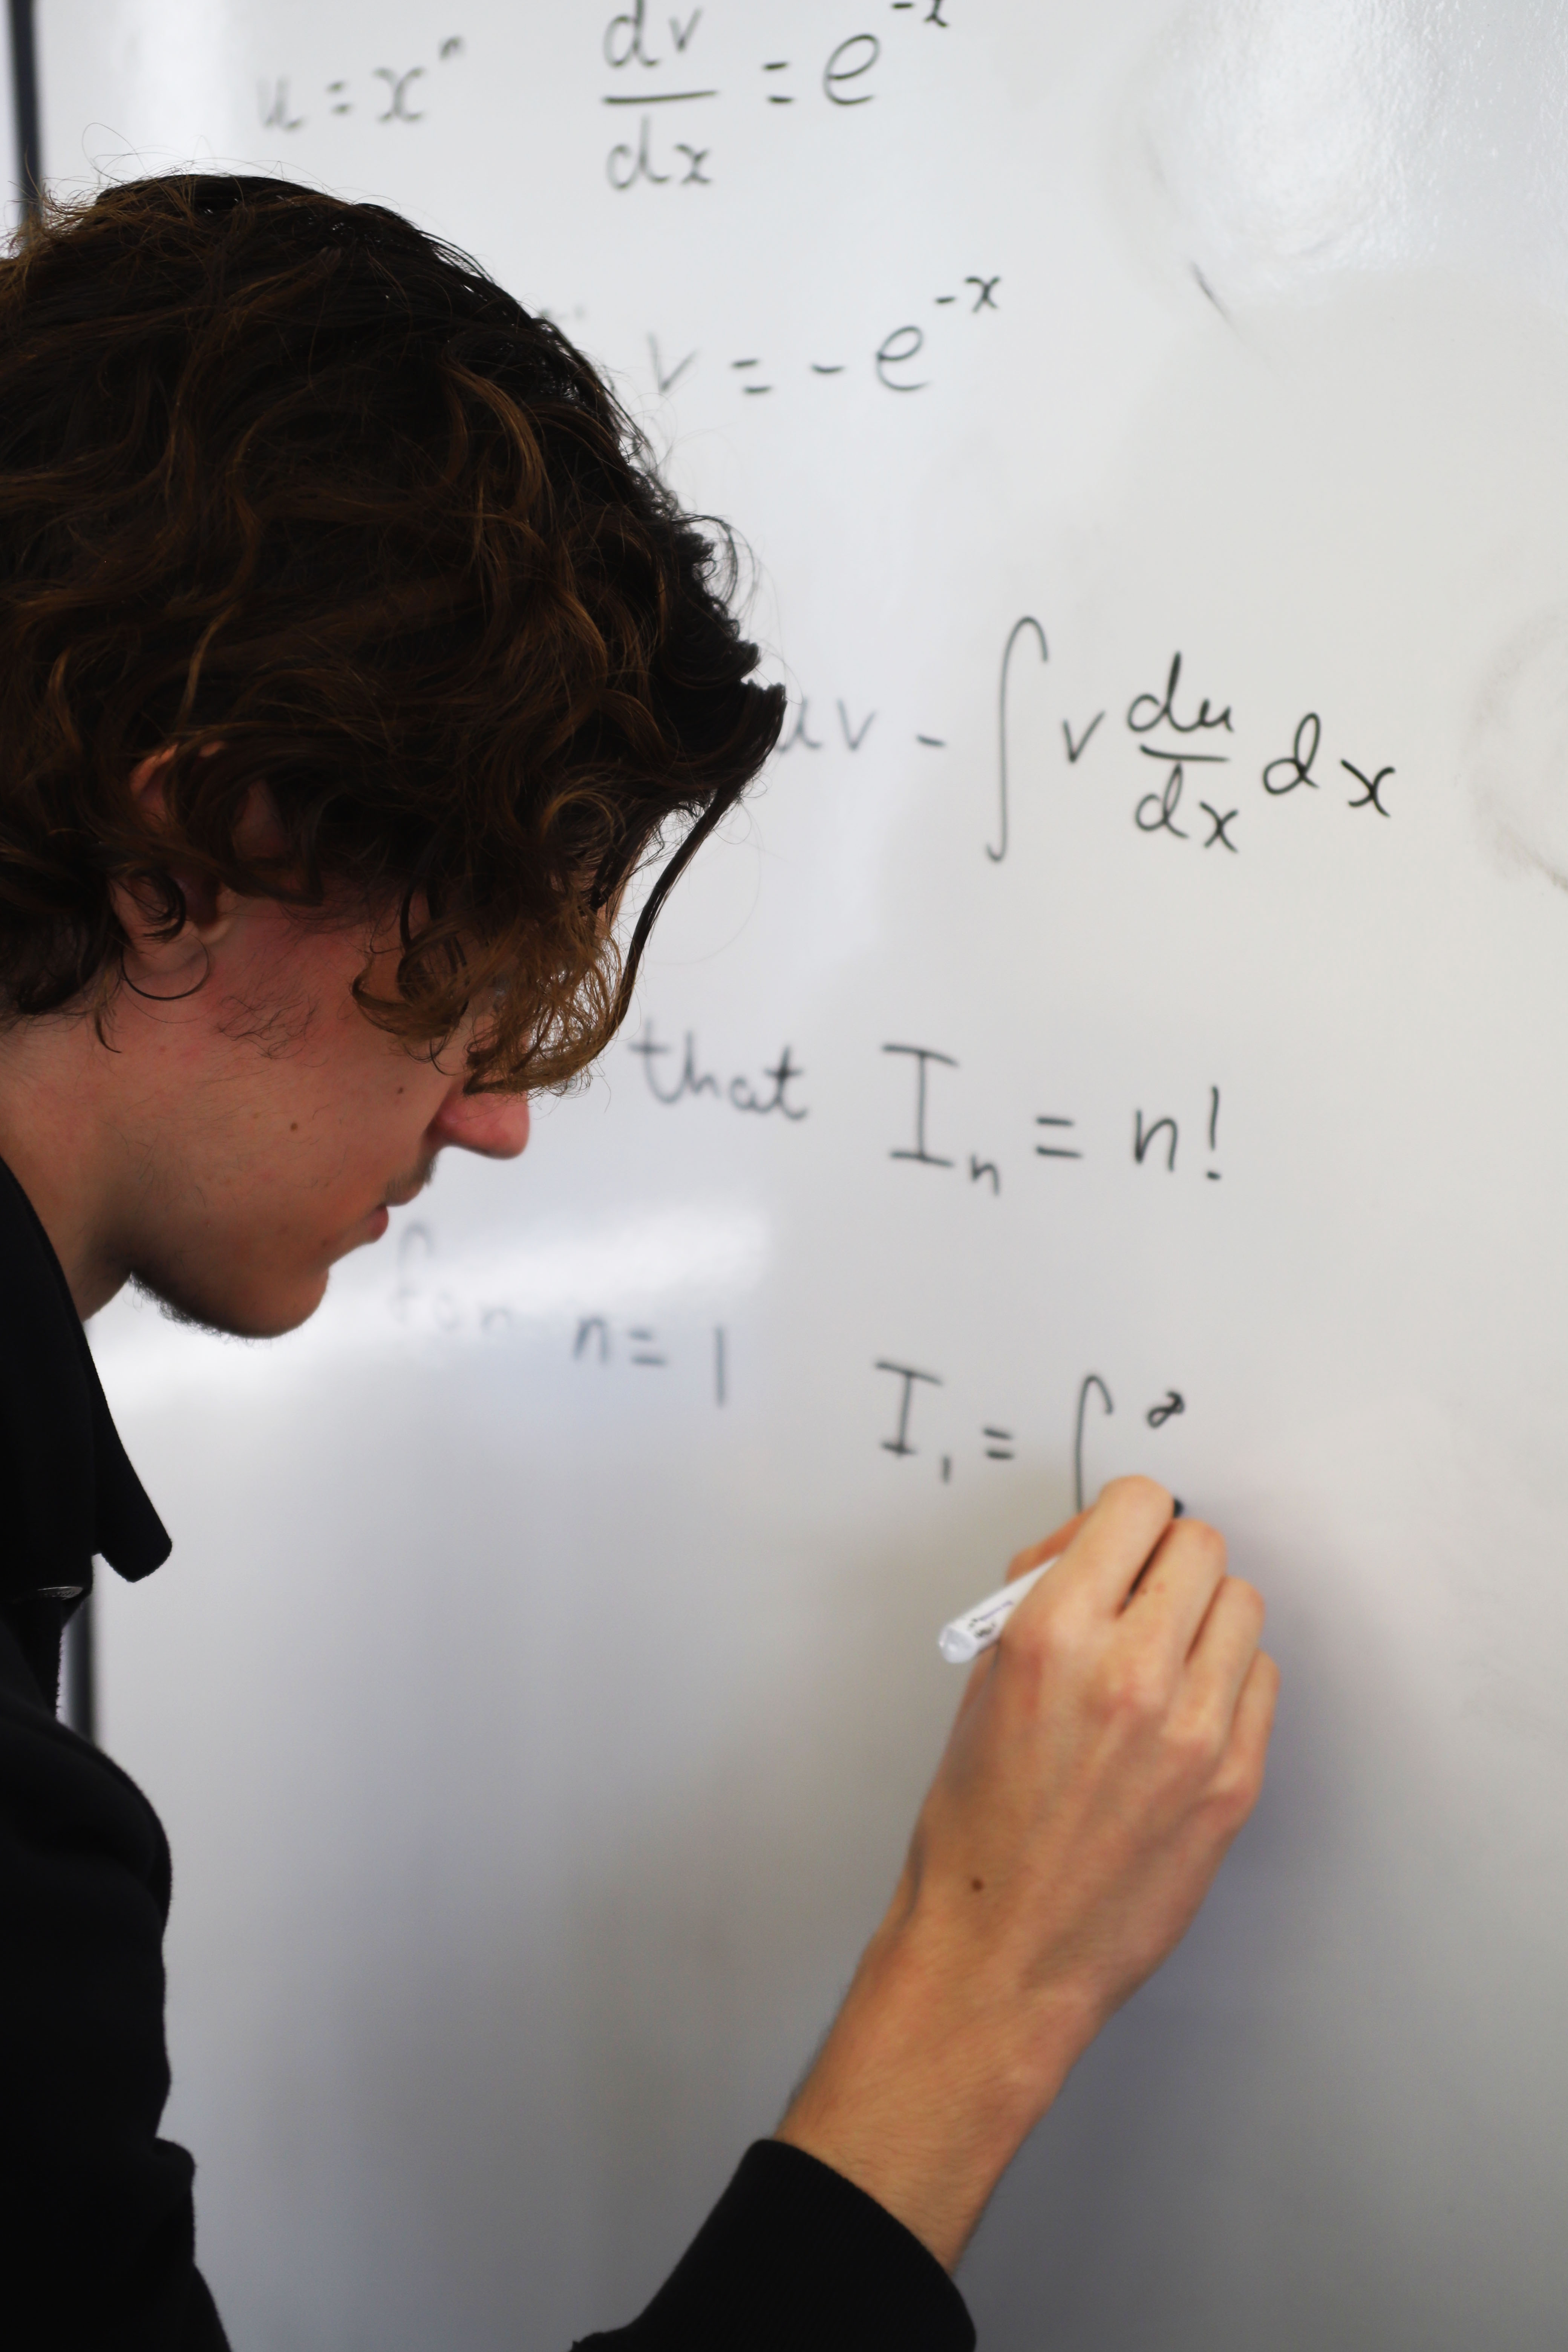 u = xⁿ dv/dx = e⁻ˣ
v = -e⁻ˣ
uv - ∫ v du/dx dx
that Iₙ = n!
for n = 1 I₁ = ∫ ∞